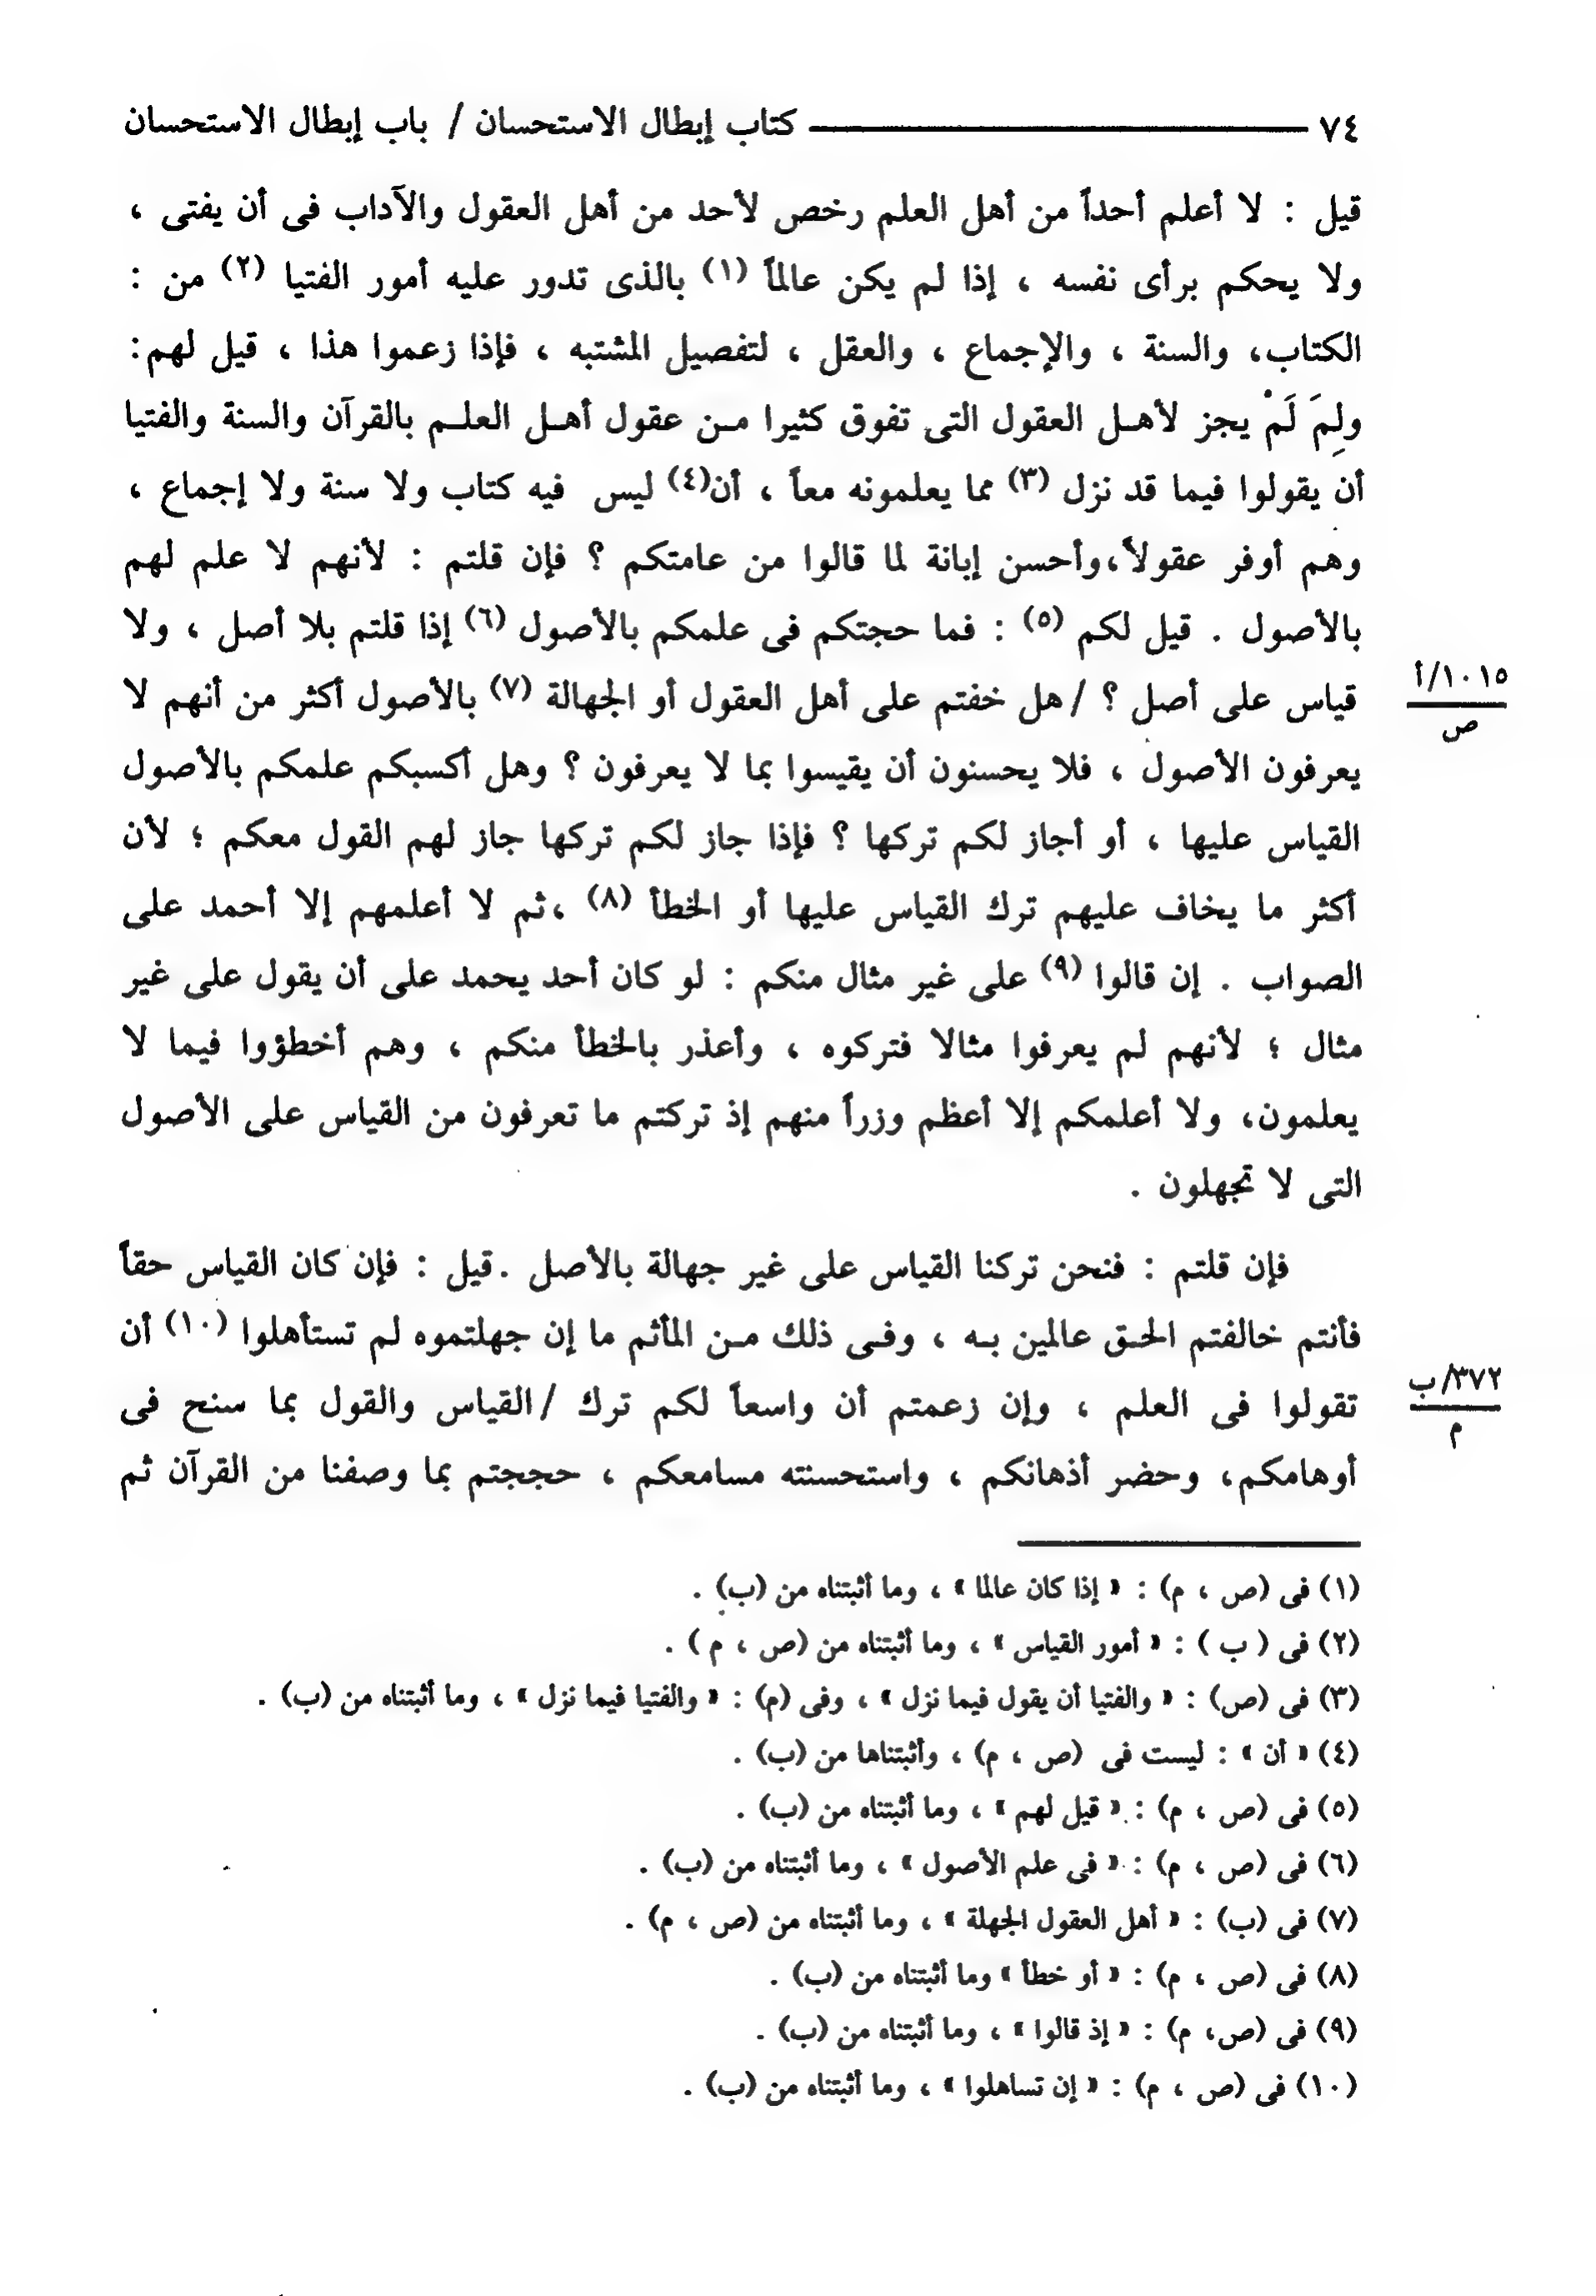 ٧٤ كتاب إبطال الاستحسان / باب إبطال الاستحسان
قيل : لا أعلم أحداً من أهل العلم رخص لأحد من أهل العقول والآداب فى أن يفتى ،
ولا يحكم برأى نفسه ، إذا لم يكن عالماً (١) بالذى تدور عليه أمور الفتيا (٢) من :
الكتاب، والسنة ، والإجماع ، والعقل ، لتفصيل المشتبه ، فإذا زعموا هذا ، قيل لهم:
ولِمَ لَمْ يجز لأهـل العقول التى تفوق كثيرا مـن عقول أهـل العلـم بالقرآن والسنة والفتيا
أن يقولوا فيما قد نزل (٣) مما يعلمونه معاً ، أن(٤) ليس فيه كتاب ولا سنة ولا إجماع ،
وهم أوفر عقولاً،وأحسن إبانة لما قالوا من عامتكم ؟ فإن قلتم : لأنهم لا علم لهم
بالأصول . قيل لكم (٥) : فما حجتكم فى علمكم بالأصول (٦) إذا قلتم بلا أصل ، ولا
قياس على أصل ؟ /هل خفتم على أهل العقول أو الجهالة (٧) بالأصول أكثر من أنهم لا
١٠١٥/أ
ص
يعرفون الأصول ، فلا يحسنون أن يقيسوا بما لا يعرفون ؟ وهل أكسبكم علمكم بالأصول
القياس عليها ، أو أجاز لكم تركها ؟ فإذا جاز لكم تركها جاز لهم القول معكم ؛ لأن
أكثر ما يخاف عليهم ترك القياس عليها أو الخطأ (٨) ،ثم لا أعلمهم إلا أحمد على
الصواب . إن قالوا (٩) على غير مثال منكم : لو كان أحد يحمد على أن يقول على غير
مثال ؛ لأنهم لم يعرفوا مثالا فتركوه ، وأعذر بالخطأ منكم ، وهم أخطؤوا فيما لا
يعلمون، ولا أعلمكم إلا أعظم وزراً منهم إذ تركتم ما تعرفون من القياس على الأصول
التى لا تجهلون .
فإن قلتم : فنحن تركنا القياس على غير جهالة بالأصل .قيل : فإن كان القياس حقاً
فأنتم خالفتم الحـق عالمين بـه ، وفـى ذلك مـن المأثم ما إن جهلتموه لم تستأهلوا (١٠) أن
تقولوا فى العلم ، وإن زعمتم أن واسعاً لكم ترك /القياس والقول بما سنح فى
٣٧٢/ب
م
أوهامكم، وحضر أذهانكم ، واستحسنته مسامعكم ، حججتم بما وصفنا من القرآن ثم
(١) فى (ص ، م) : « إذا كان عالما » ، وما أثبتناه من (ب) .
(٢) فى ( ب ) : « أمور القياس » ، وما أثبتناه من (ص ، م ) .
(٣) فى (ص) : « والفتيا أن يقول فيما نزل » ، وفى (م) : « والفتيا فيما نزل » ، وما أثبتناه من (ب) .
(٤) « أن » : ليست فى (ص ، م) ، وأثبتناها من (ب) .
(٥) فى (ص ، م) : « قيل لهم » ، وما أثبتناه من (ب) .
(٦) فى (ص ، م) : « فى علم الأصول » ، وما أثبتناه من (ب) .
(٧) فى (ب) : « أهل العقول الجهلة » ، وما أثبتناه من (ص ، م) .
(٨) فى (ص ، م) : « أو خطأ » وما أثبتناه من (ب) .
(٩) فى (ص، م) : « إذ قالوا » ، وما أثبتناه من (ب) .
(١٠) فى (ص ، م) : « إن تساهلوا » ، وما أثبتناه من (ب) .